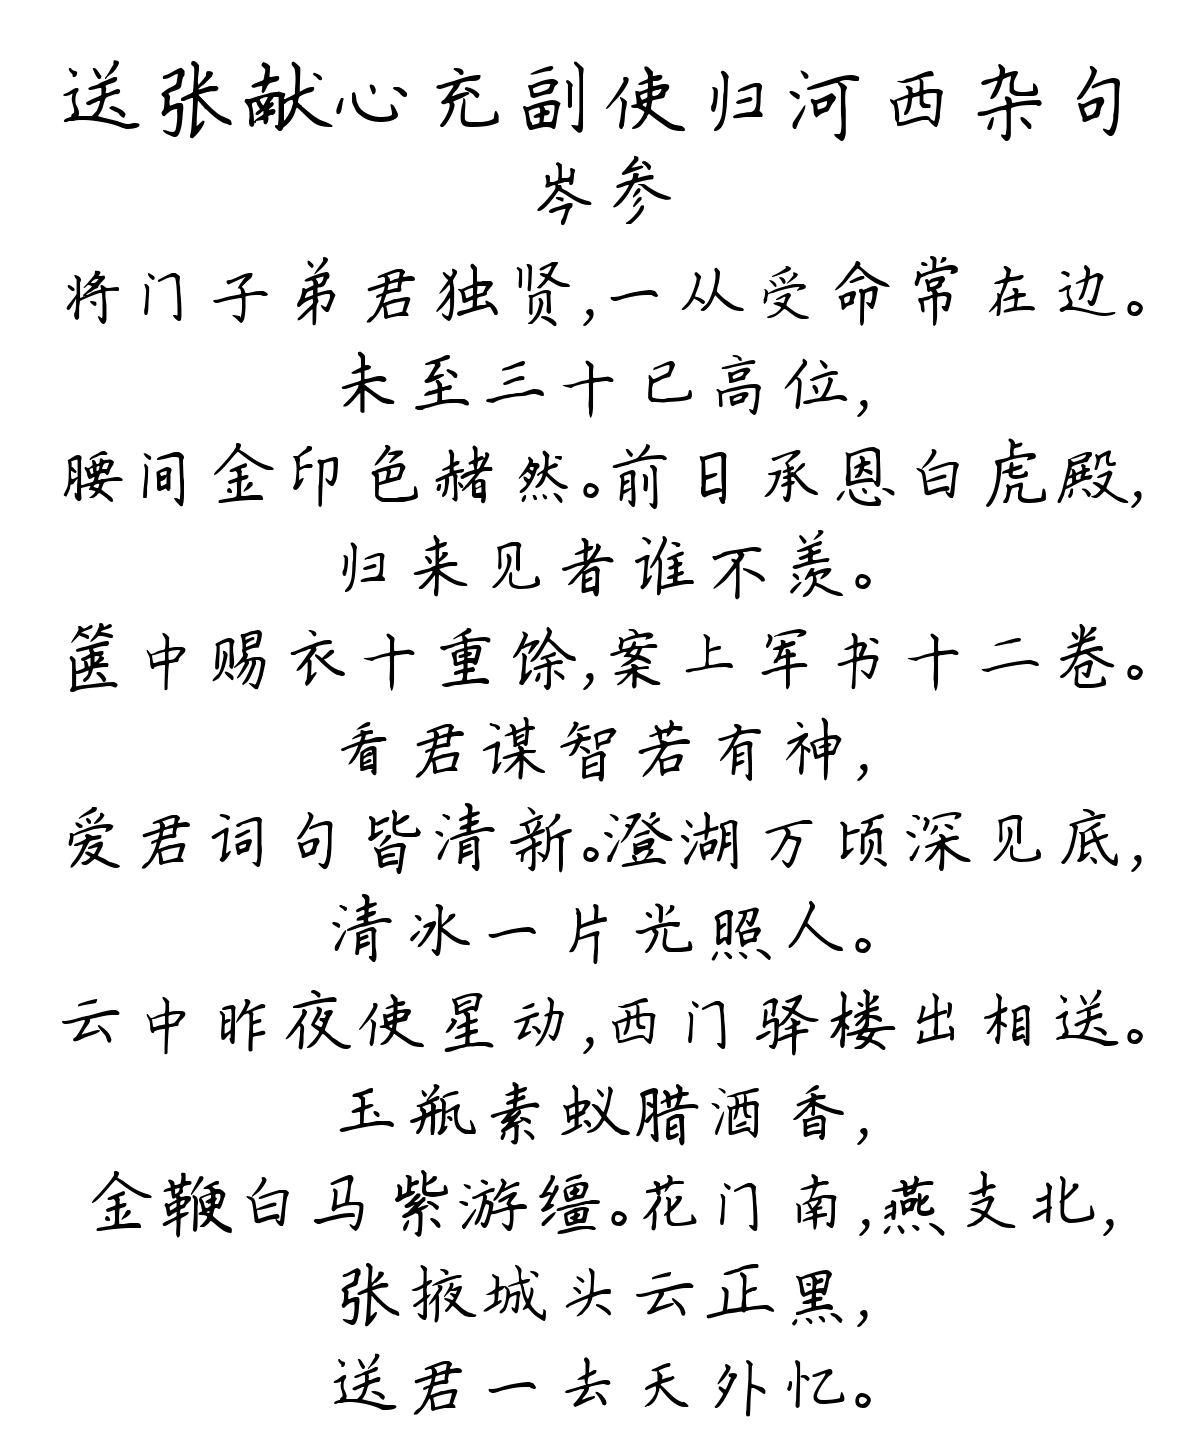 送张献心充副使归河西杂句
岑参
将门子弟君独贤,一从受命常在边。
未至三十已高位,
腰间金印色赭然。前日承恩白虎殿,
归来见者谁不羡。
箧中赐衣十重馀,案上军书十二卷。
看君谋智若有神,
爱君词句皆清新。澄湖万顷深见底,
清冰一片光照人。
云中昨夜使星动,西门驿楼出相送。
玉瓶素蚁腊酒香,
金鞭白马紫游缰。花门南,燕支北,
张掖城头云正黑,
送君一去天外忆。